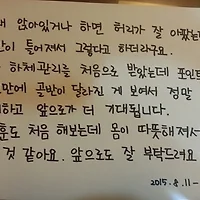 앉아있거나 하면 허리가 잘 아팠는
틀어져서 그렇다고 하더라구요.
하체관리를 처음으로 받았는데 포인트
만에 골반이 달라진 게 보여서 정말
하고 앞으로가 더 기대됩니다.
도 처음 해보는데 몸이 따뜻해져서
것 같아요. 앞으로도 잘 부탁드려요
2015. 8. 11 -